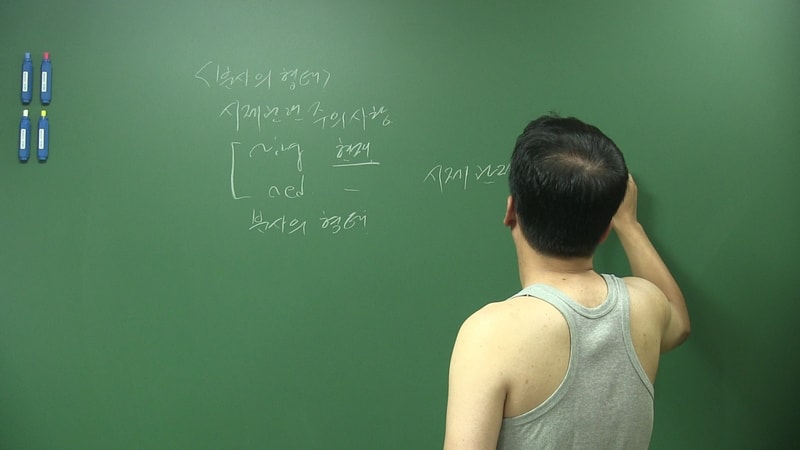 <분사의 형태>
시제관련 주의사항
~ing 현재
~ed —
분사의 형태
시제 관련